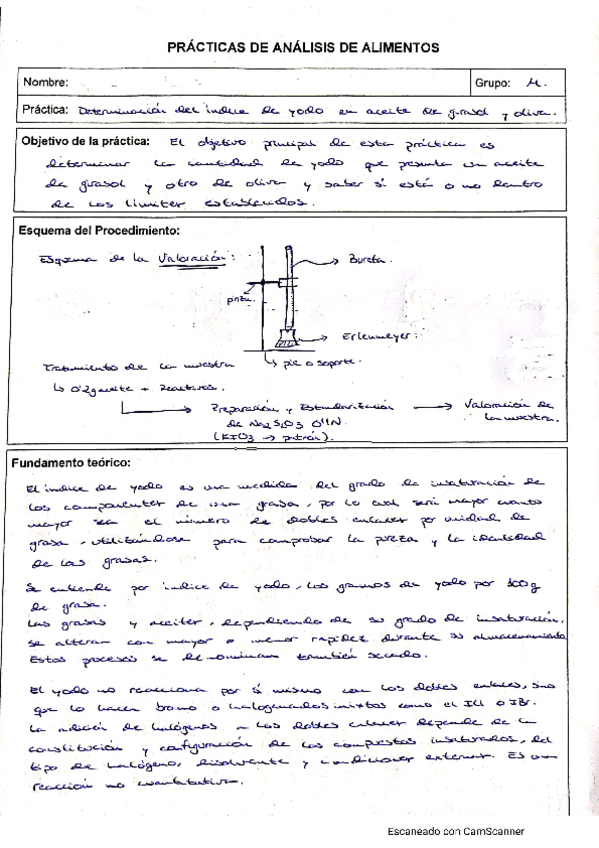 PRÁCTICAS DE ANÁLISIS DE ALIMENTOS
Nombre:
Grupo: M.
Práctica: Determinación del índice de yodo en aceite de girasol y oliva.
Objetivo de la práctica: El objetivo principal de esta práctica es
determinar la cantidad de yodo que presenta un aceite
de girasol y otro de oliva y saber si está o no dentro
de los límites establecidos.
Esquema del Procedimiento:
Esquema de la Valoración:
Bureta.
pinza.
Erlenmeyer.
pie o soporte.
Tratamiento de la muestra
↳ 0'2g aceite + Reactivos.
Preparación y Estandarización → Valoración de
de Na2S2O3 0'1N la muestra.
(KIO3 → patrón).
Fundamento teórico:
El índice de yodo es una medida del grado de insaturación de
los componentes de una grasa, por lo cual será mayor cuanto
mayor sea el número de dobles enlaces por unidad de
grasa, utilizándose para comprobar la pureza y la identidad
de las grasas.
Se entiende por índice de yodo, los gramos de yodo por 100g
de grasa.
Las grasas y aceites, dependiendo de su grado de insaturación,
se alteran con mayor o menor rapidez durante su almacenamiento.
Estos procesos se denominan también secado.
El yodo no reacciona por sí mismo con los dobles enlaces, sino
que lo hacen bromo o halogenados mixtos como el ICl o IBr.
La adición de halógenos a los dobles enlaces depende de la
constitución y configuración de los compuestos insaturados, del
tipo de halógeno, disolvente y condiciones externas. Es una
reacción no cuantitativa.
Escaneado con CamScanner